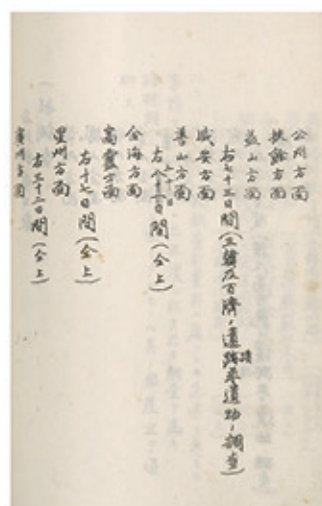 公州方面
扶餘方面
益山方面
右七十三日間(三韓及百濟ノ遺蹟並遺物ノ調査)
咸安方面
善山方面
右八十一日間(仝上)
金海方面
高靈方面
右十七日間(仝上)
星州方面
右三十二日間(仝上)